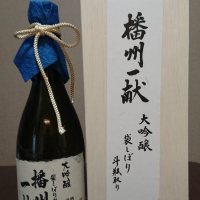 播州一献
大吟醸
袋しぼり
斗瓶取り
大吟醸
袋しぼり
播州一